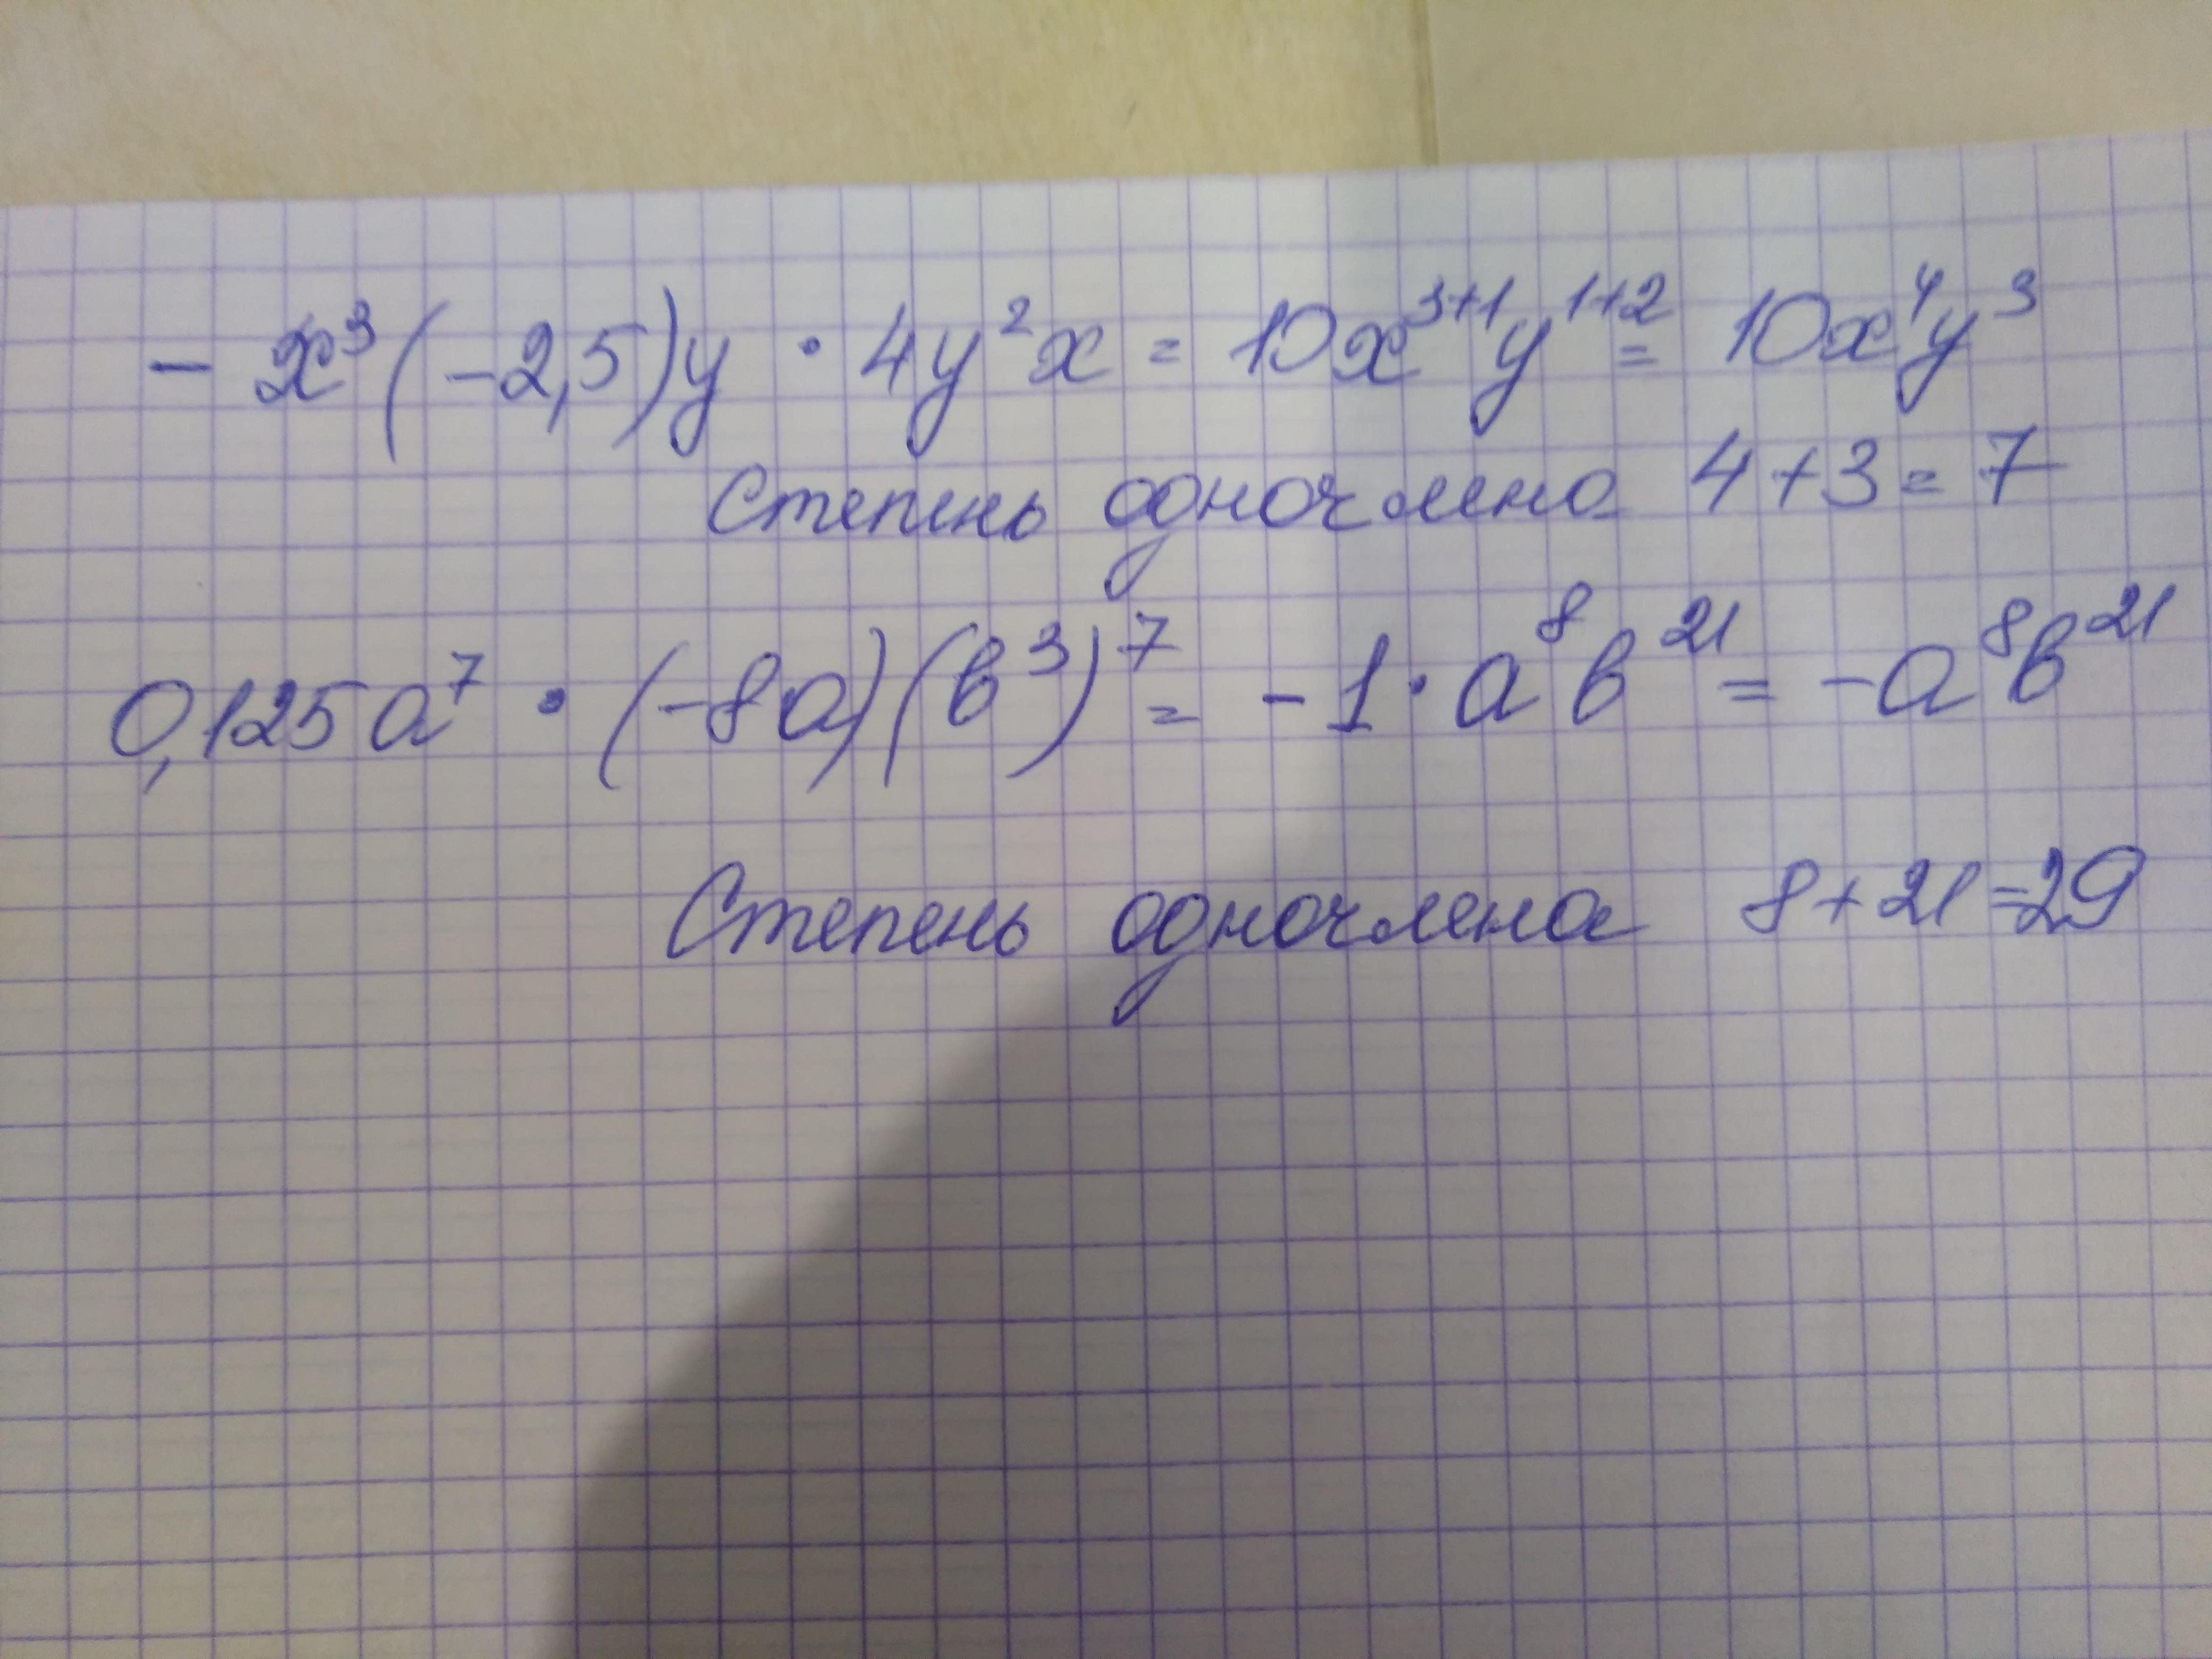 - x³(-2,5)y · 4y²x = 10x³⁺¹y¹⁺² = 10x⁴y³
Степень одночлена 4+3=7
0,125a⁷ · (-8a)(b³)⁷ = -1 · a⁸b²¹ = -a⁸b²¹
Степень одночлена 8+21=29